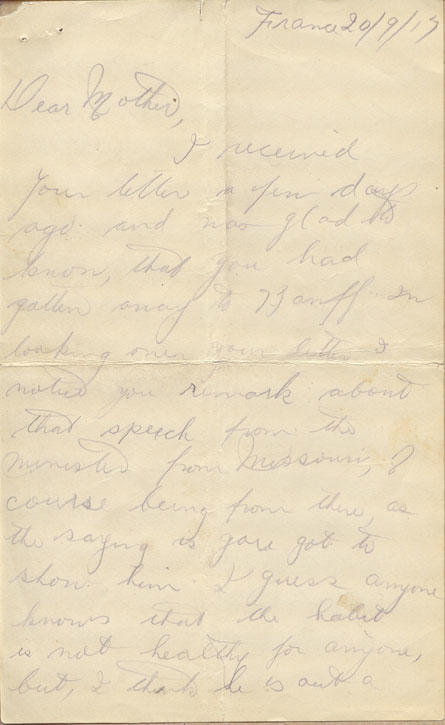 France 20/9/17
Dear Mother,
I received
your letter a few days
ago and was glad to
know, that you had
gotten away to Banff. In
looking over your letter I
notice you remark about
that speech from the
minister from Missouri, of
course being from there, as
the saying is you got to
show him. I guess anyone
knows that the habit
is not healthy for anyone,
but, I think he is out a